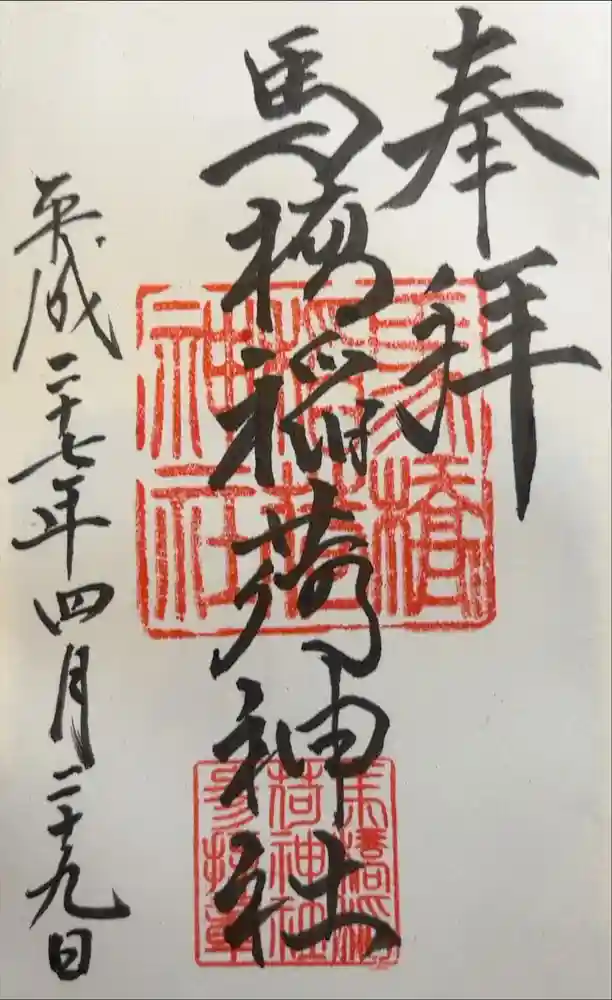 奉拝
馬橋稲荷神社
平成二十七年四月二十九日
馬橋稲荷神社
馬橋稲荷神社参拝章